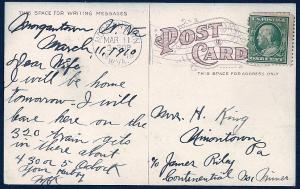 THIS SPACE FOR WRITING MESSAGES
Morgantown W Va
March 11, 1910
Dear Wife,
I will be home
tomorrow. I will
leave here on the
3 20 train gits
in there about
4 30 or 5 o'clock
Your hubby
POST CARD
THIS SPACE FOR ADDRESS ONLY
Mrs. H. King
Uniontown
Pa
c/o James Riley
Continental No.